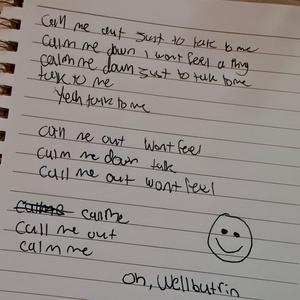 Call me out just to talk to me
calm me down I wont feel a thing
calm me down just to talk to me
talk to me
Yeah talk to me
call me out wont feel
calm me down talk
call me out wont feel
callme
call me out
calm me
oh, Wellbutrin